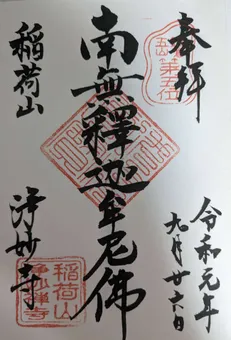 奉拝
令和元年
九月廿六日
第五位
南無釋迦牟尼佛
稲荷山
浄妙寺
稲荷山
浄妙禅寺